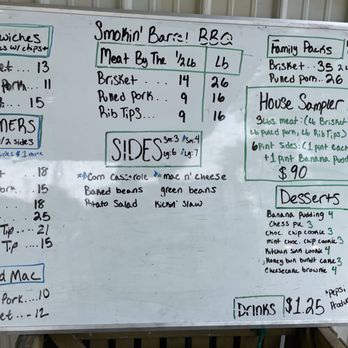 Smokin' Barrel BBQ
wiches
s w/ chips
et.... 13
Pork .. 11
... 15
NERS
/ 2 sides
... 18
ork ... 15
... 18
... 25
Tip ... 21
Tip ... 15
d Mac
Pork.... 10
ket.... 12
Meat By The 1/2 Lb Lb
Brisket.... 14 26
Pulled Pork... 9 16
Rib Tips.... 9 16
SIDES
Sm: 3 Sm: 4
Lg: 6 Lg: 7
Corn Casserole mac n' cheese
Baked beans green beans
Potato Salad Kickin' Slaw
Family Packs
Brisket... 35
Pulled Pork... 26
House Sampler
3 Lbs meat: (Lb Brisket
Lb Pulled pork, Lb Rib Tips)
6 pint sides: (1 pint each
+ 1 pint Banana Pudd
$90
Desserts
Banana Pudding 4
Chess pie 3
Choc. chip cookie 3
mint choc. chip cookie 3
Kitchen sink cookie 4
Honey bun bundt cake 3
Cheesecake brownie 4
Drinks $1.25
*Pepsi
Produc